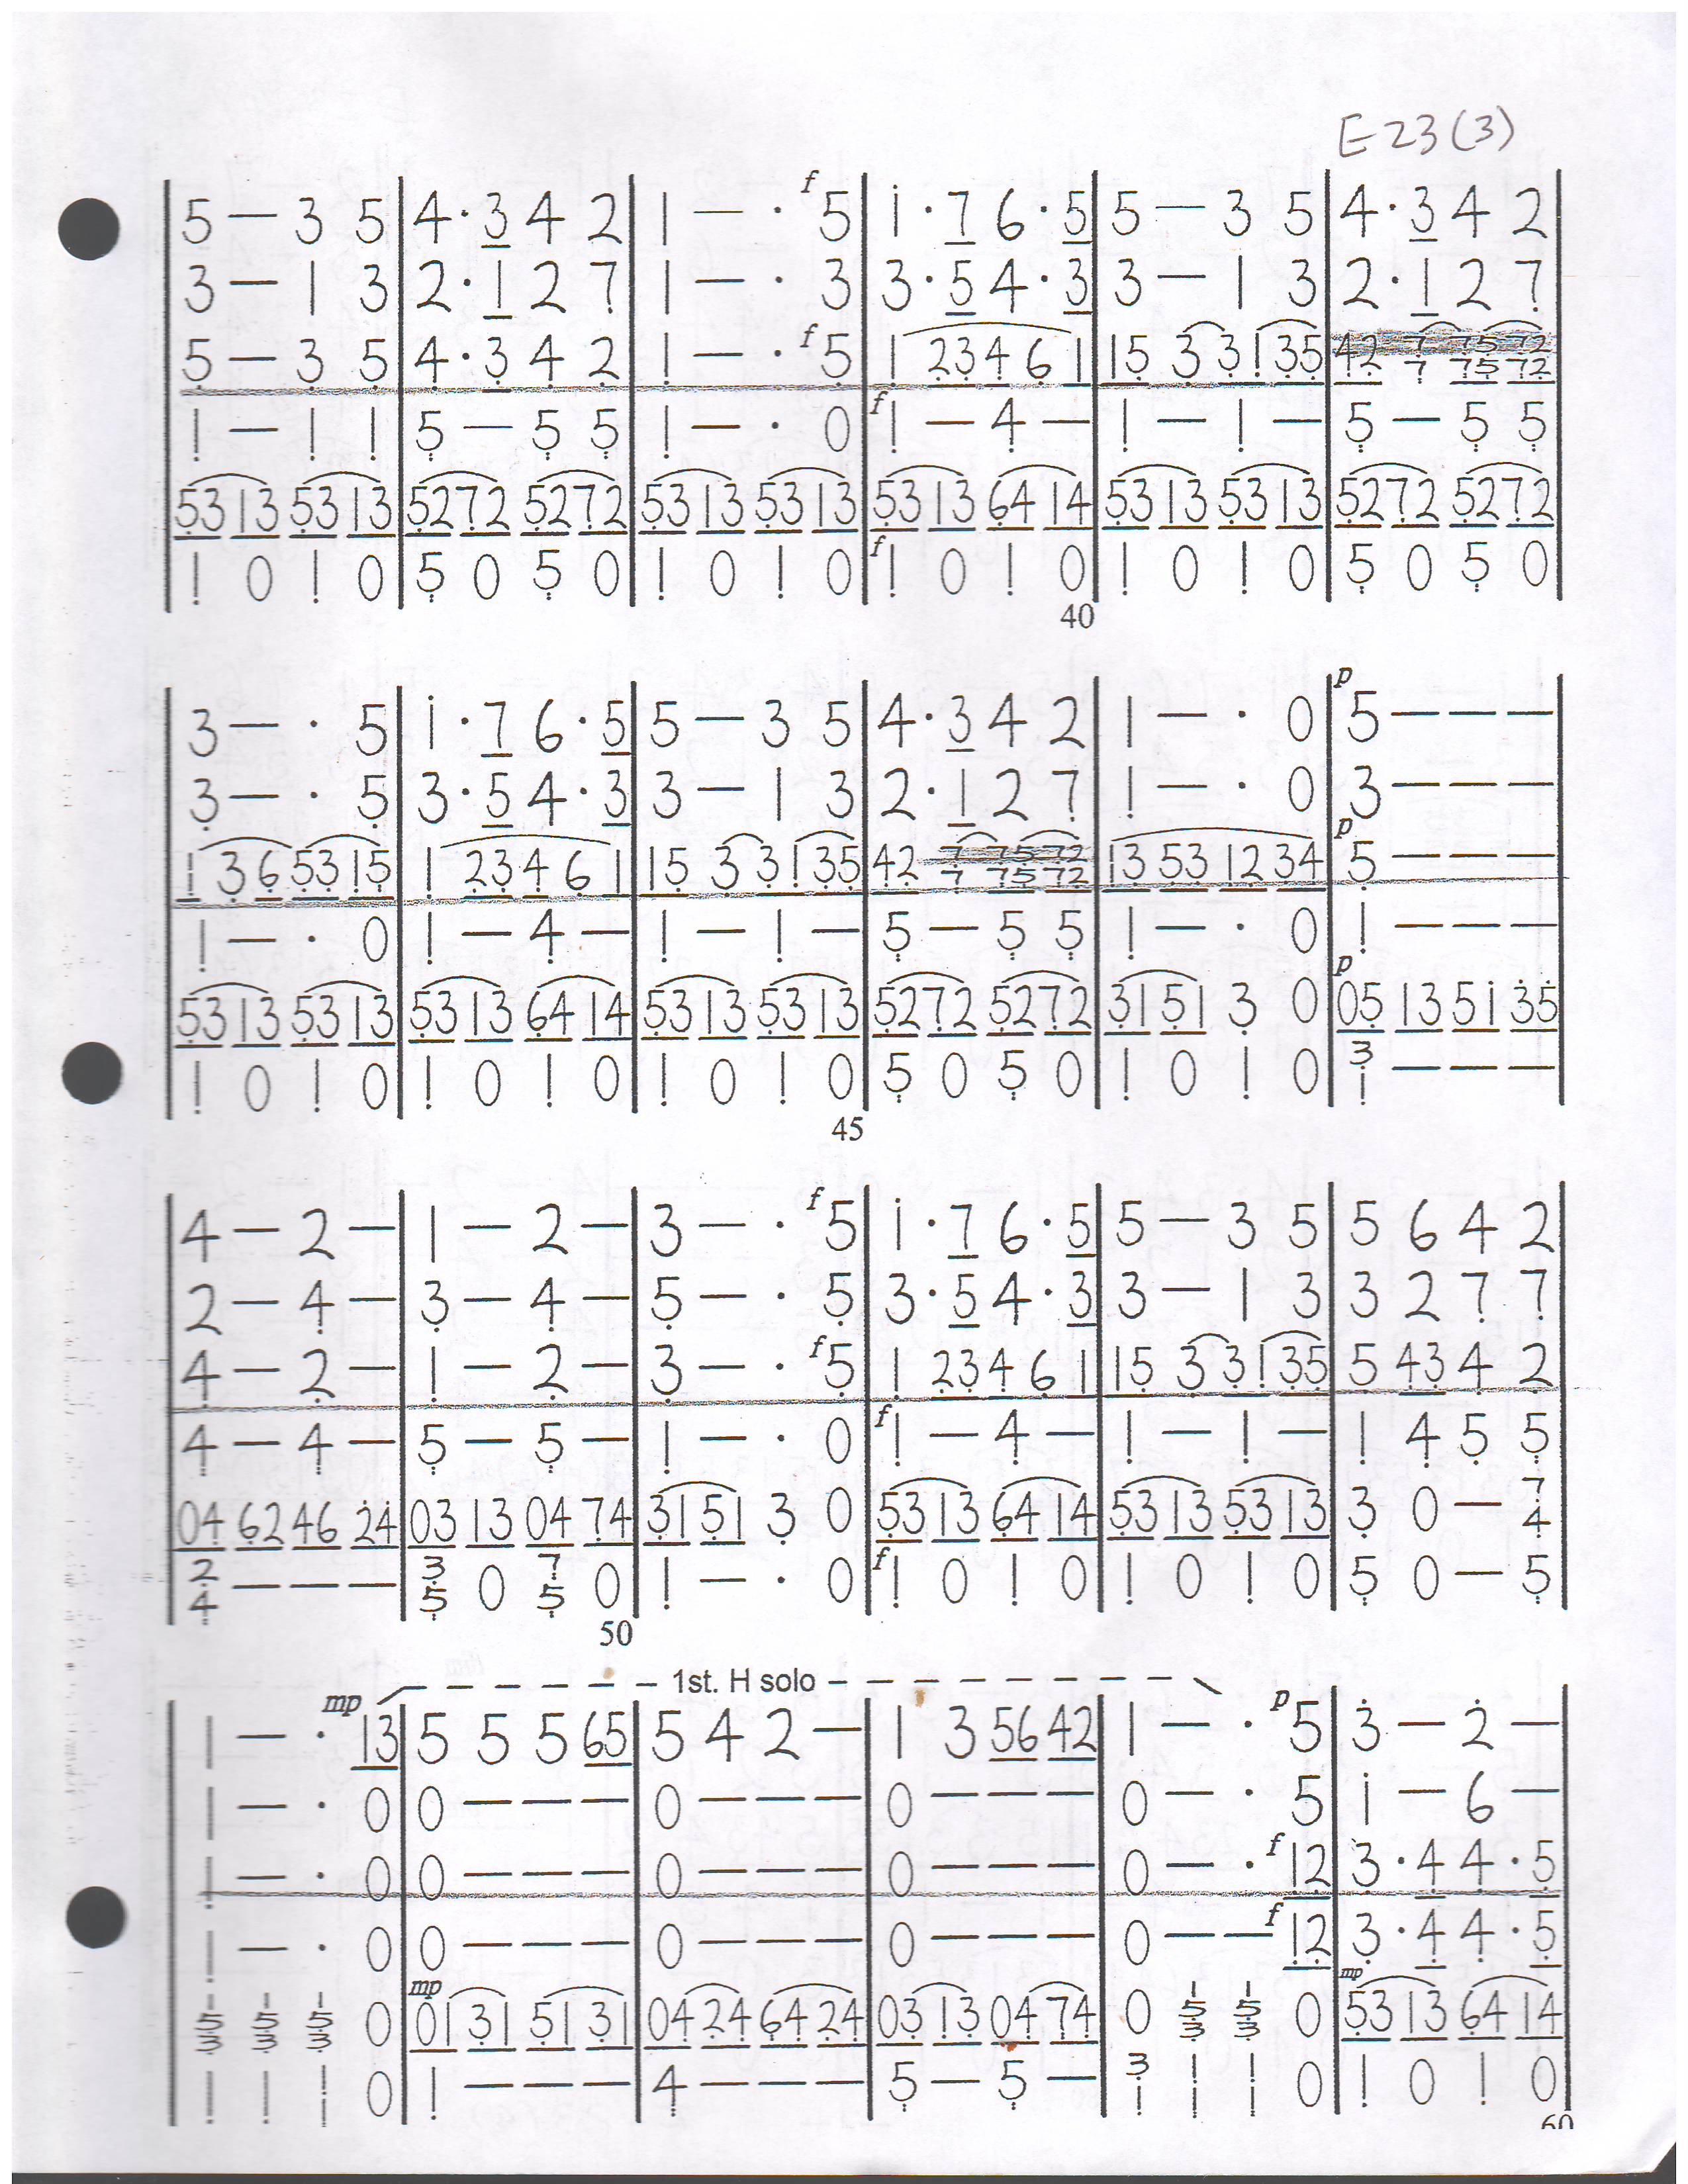 E 23 (3)
f
5 — 3 5 | 4 · 3 4 2 | 1 — · 5 | i · 7 6 · 5 | 5 — 3 5 | 4 · 3 4 2
3 — 1 3 | 2 · 1 2 7 | 1 — · 3 | 3 · 5 4 · 3 | 3 — 1 3 | 2 · 1 2 7
f
5 — 3 5 | 4 · 3 4 2 | 1 — · 5 | 1 23 4 6 1 | 15 3 3 1 35 | 42 7 75 72
f
1 — 1 1 | 5 — 5 5 | 1 — · 0 | 1 — 4 — | 1 — 1 — | 5 — 5 5
53 13 53 13 | 52 72 52 72 | 53 13 53 13 | 53 13 64 14 | 53 13 53 13 | 52 72 52 72
f
1 0 1 0 | 5 0 5 0 | 1 0 1 0 | 1 0 1 0 | 1 0 1 0 | 5 0 5 0
40
p
3 — · 5 | i · 7 6 · 5 | 5 — 3 5 | 4 · 3 4 2 | 1 — · 0 | 5 — — —
3 — · 5 | 3 · 5 4 · 3 | 3 — 1 3 | 2 · 1 2 7 | 1 — · 0 | 3 — — —
p
1 3 6 53 15 | 1 23 4 6 1 | 15 3 3 1 35 | 42 7 75 72 | 13 53 12 34 | 5 — — —
1 — · 0 | 1 — 4 — | 1 — 1 — | 5 — 5 5 | 1 — · 0 | 1 — — —
p
53 13 53 13 | 53 13 64 14 | 53 13 53 13 | 52 72 52 72 | 31 51 3 0 | 05 13 5i 35
3
1 0 1 0 | 1 0 1 0 | 1 0 1 0 | 5 0 5 0 | 1 0 1 0 | 1 — — —
45
f
4 — 2 — | 1 — 2 — | 3 — · 5 | i · 7 6 · 5 | 5 — 3 5 | 5 6 4 2
2 — 4 — | 3 — 4 — | 5 — · 5 | 3 · 5 4 · 3 | 3 — 1 3 | 3 2 7 7
f
4 — 2 — | 1 — 2 — | 3 — · 5 | 1 23 4 6 1 | 15 3 3 1 35 | 5 43 4 2
f
4 — 4 — | 5 — 5 — | 1 — · 0 | 1 — 4 — | 1 — 1 — | 1 4 5 5
7
04 62 46 24 | 03 13 04 74 | 31 51 3 0 | 53 13 64 14 | 53 13 53 13 | 3 0 — 4
2 3 7 f
4 — — — | 5 0 5 0 | 1 — · 0 | 1 0 1 0 | 1 0 1 0 | 5 0 — 5
50
mp 1st. H solo p
1 — · 13 | 5 5 5 65 | 5 4 2 — | 1 3 56 42 | 1 — · 5 | 3 — 2 —
1 — · 0 | 0 — — — | 0 — — — | 0 — — — | 0 — · 5 | i — 6 —
f
1 — · 0 | 0 — — — | 0 — — — | 0 — — — | 0 — · 12 | 3 · 4 4 · 5
f
1 — · 0 | 0 — — — | 0 — — — | 0 — — — | 0 — — 12 | 3 · 4 4 · 5
mp mp
1 1 1 1 1
5 5 5 5 5
3 3 3 0 | 01 31 51 31 | 04 24 64 24 | 03 13 04 74 | 0 3 3 0 | 53 13 64 14
3
1 1 1 0 | 1 — — — | 4 — — — | 5 — 5 — | 1 1 1 0 | 1 0 1 0
60